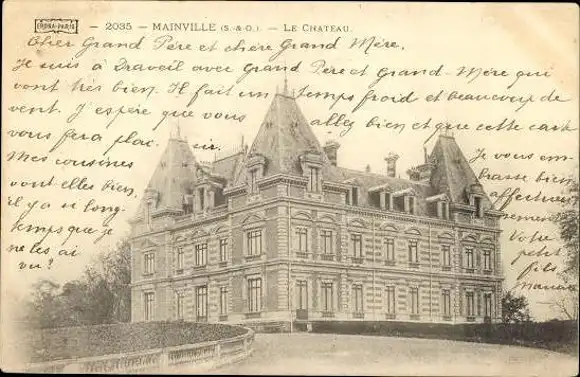 EDDNA-PARIS
- 2035 - MAINVILLE (S.-&-O.). - LE CHATEAU.
Cher Grand Père et chère Grand Mère,
Je suis à Draveil avec Grand Père et Grand Mère qui
vont très bien. Il fait un temps froid et beaucoup de
vent. J'espère que vous allez bien et que cette carte
vous fera plaisir.
Mes cousines
vont elles bien
il y a si long-
temps que je
ne les ai
vu?
Je vous em-
brasse
affectueuse-
ment
Votre
petit fils
Maurice